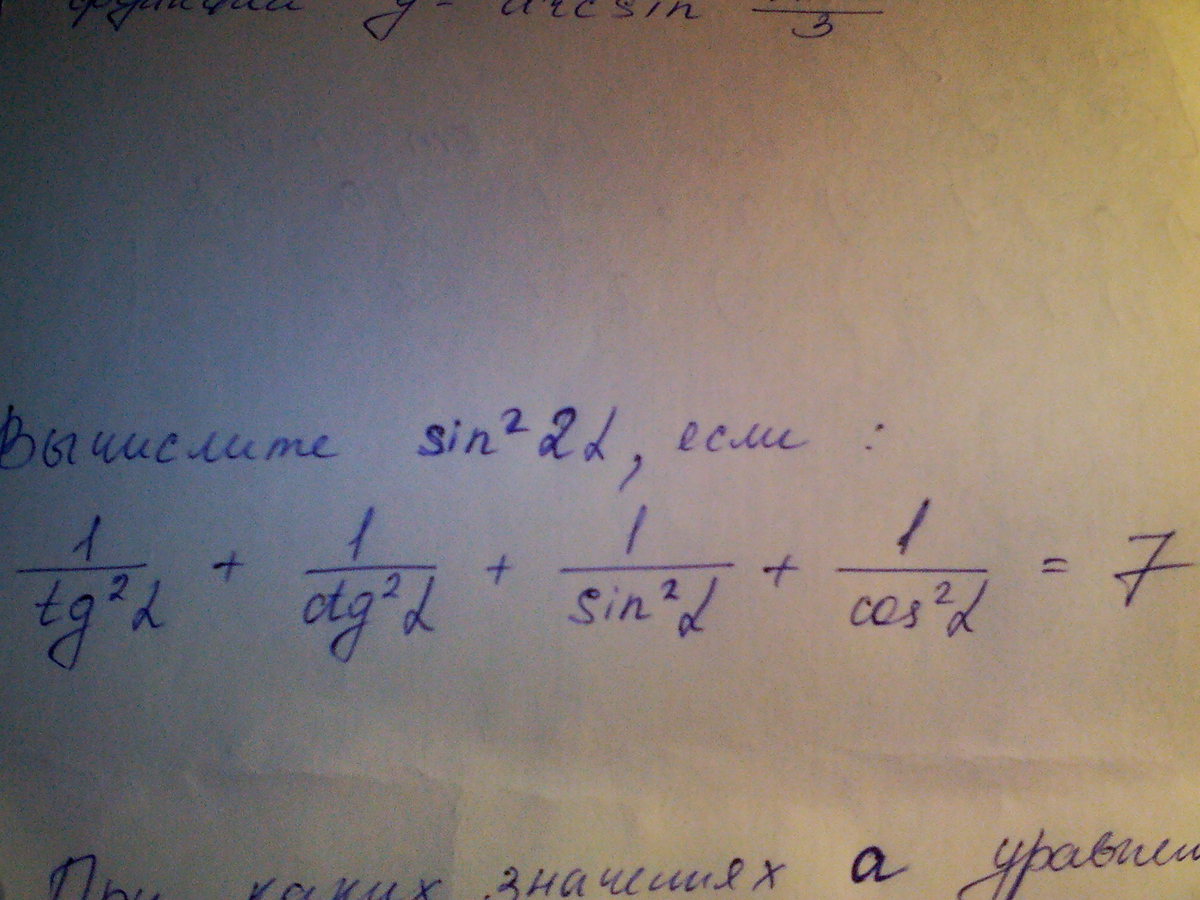 функции y = arcsin /3
Вычислите sin² 2α, если :
1/tg²α + 1/ctg²α + 1/sin²α + 1/cos²α = 7
При каких значениях a